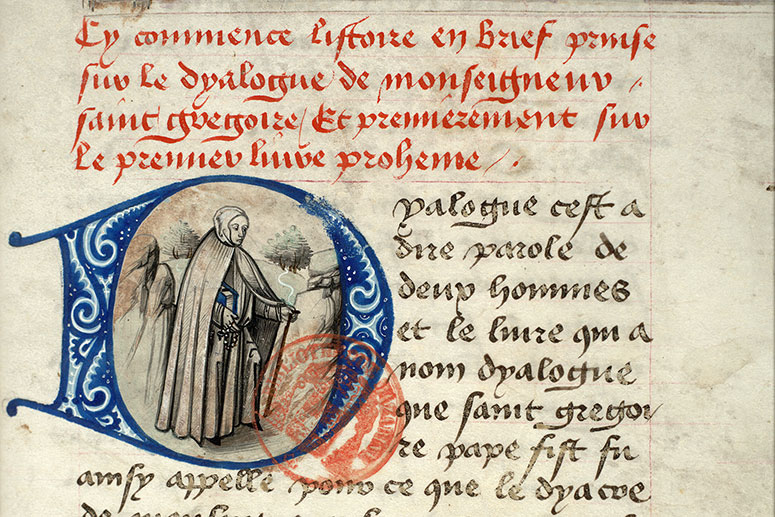 Cy commence listoire en brief prinse
sur le dyalogue de monseigneur
saint gregoire / Et premierement sur
le premier livre proheme
Dyalogue cest a
dire parole de
deux hommes
et le livre qui a
nom dyalogue
que saint gregoi
re pape fist fu
ainsy appelle pour ce que le dyacre